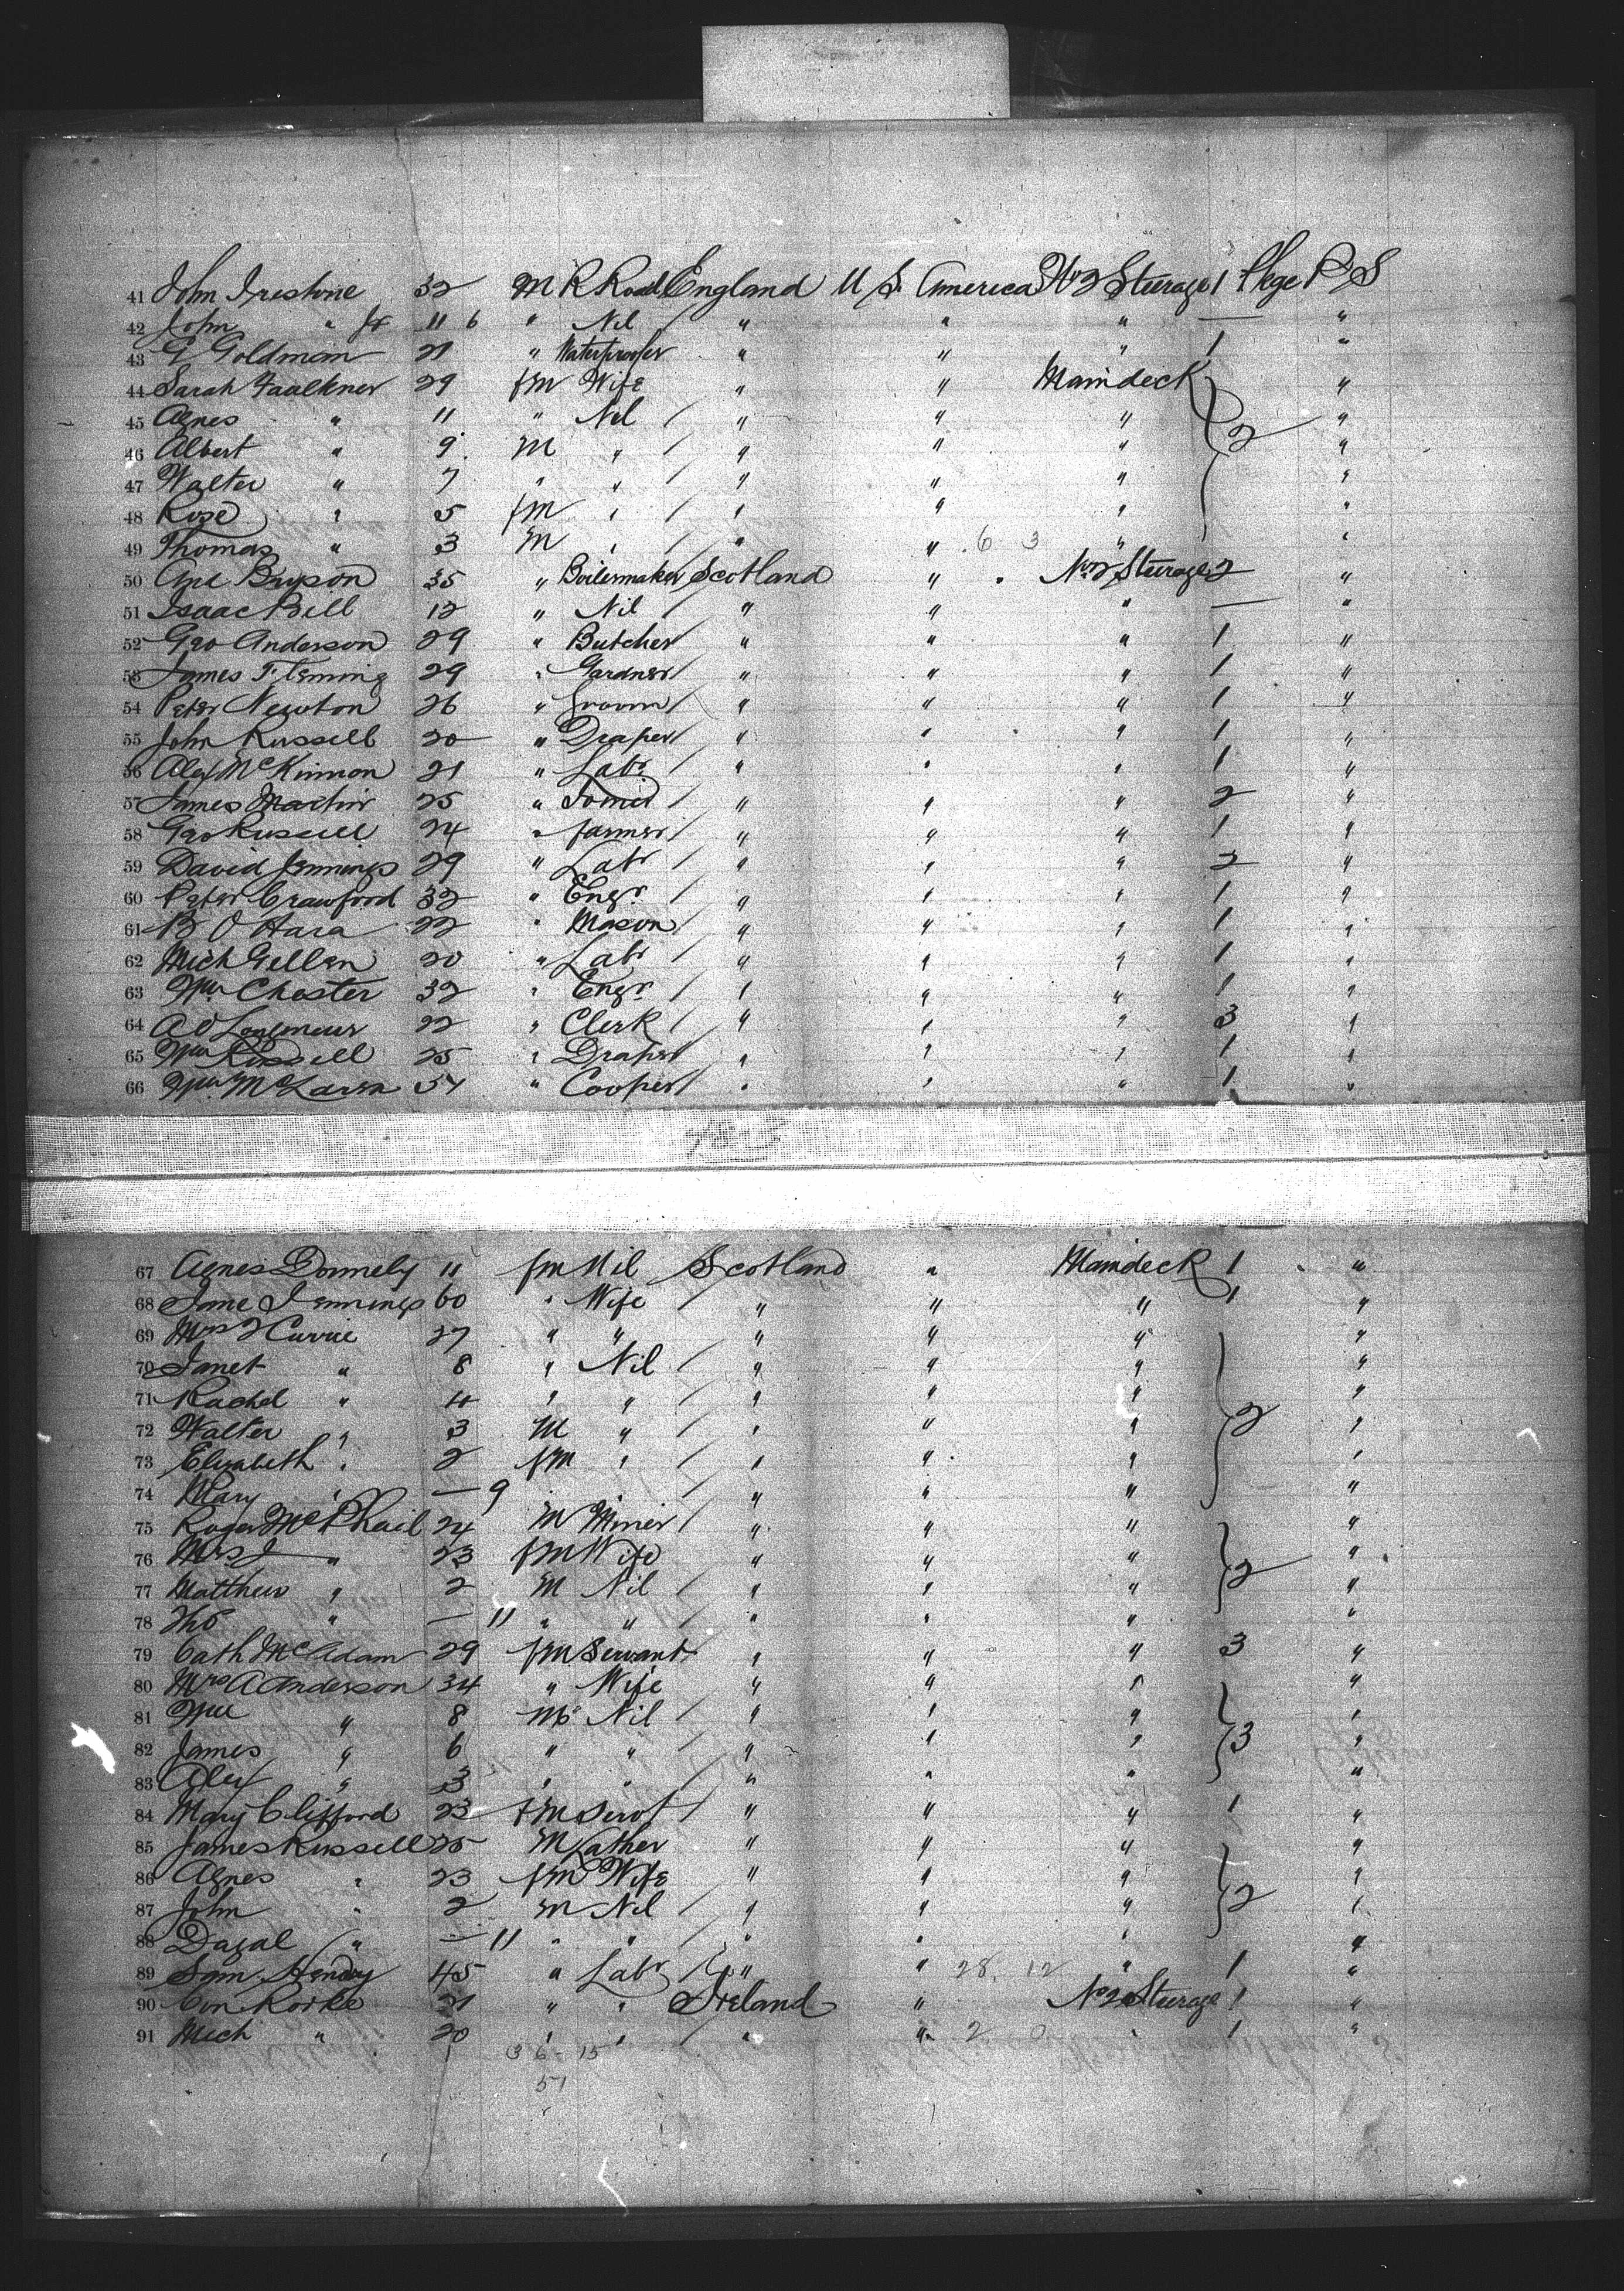 41 John Irestone 32 M R Road England U S America No 2 Steerage 1 Pkge P S
42 John " Jr 11 6 " Nil / " " " — "
43 G Goldman 21 " Waterproofer " " " 1 "
44 Sarah Faulkner 29 fm Wife " " Maindeck "
45 Agnes " 11 " Nil / " " " 2 "
46 Albert " 9 M " / " " " "
47 Walter " 7 " " / " " " "
48 Rose " 5 fm " / " " " "
49 Thomas " 3 M " / " " 6 3 " "
50 Bryson 35 " Boilermaker Scotland " No 2 Steerage 2 "
51 Isaac Bell 12 " Nil / " " " — "
52 Geo Anderson 29 " Butcher / " " " 1 "
53 James Fleming 29 " Gardner / " " " 1 "
54 Peter Newton 26 " Groom / " " " 1 "
55 John Russell 20 " Draper / " " " 1 "
56 Alex McKinnon 21 " Labr / " " " 1 "
57 James Martin 25 " / " " " 2 "
58 Geo Russell 24 " farmer / " " " 1 "
59 David Jennings 29 " Labr / " " " 2 "
60 Peter Crawford 32 " Engr / " " " 1 "
61 B O Hara 22 " Mason / " " " 1 "
62 Mich Gellen 20 " Labr / " " " 1 "
63 Wm Chester 32 " Engr / " " " 1 "
64 A D 22 " Clerk / " " " 3 "
65 Wm Russell 25 " Draper / " " " 1 "
66 Wm McLaren 54 " Cooper / " " " 1 "
67 Agnes Donnely 11 fm Nil Scotland " Maindeck 1 "
68 Jane Jennings 60 " Wife / " " " 1 "
69 Mrs Currie 27 " " " " " "
70 Janet " 8 " Nil / " " " "
71 Rachel " 4 " " / " " " "
72 Walter " 3 M " / " " " 2 "
73 Elizabeth " 2 fm " / " " " "
74 Mary " — 9 " " / " " " "
75 Roger McPhail 24 M Miner / " " " "
76 Mrs J " 23 fm Wife " " " 2 "
77 Matthew " 2 M Nil / " " " "
78 Tho " — 11 " " / " " " "
79 Cath McAdam 29 fm Servant " " " 3 "
80 Mrs A Anderson 34 " Wife " " " "
81 Wm " 8 M Nil / " " " "
82 James " 6 " " / " " " 3 "
83 Alex " 3 " " / " " " "
84 Mary Clifford 23 fm Servt / " " " 1 "
85 James Russell 25 M Lather " " " "
86 Agnes " 23 fm Wife " " " "
87 John " 2 M Nil / " " " 2 "
88 " — 11 " " / " " " "
89 Sam Hendry 45 " Labr / " " 28. 12 " 1 "
90 Con Rorke 21 " " Ireland " No 2 Steerage 1 "
91 Mich " 20 " " / " " 2 0 " 1 "
36 - 15
51